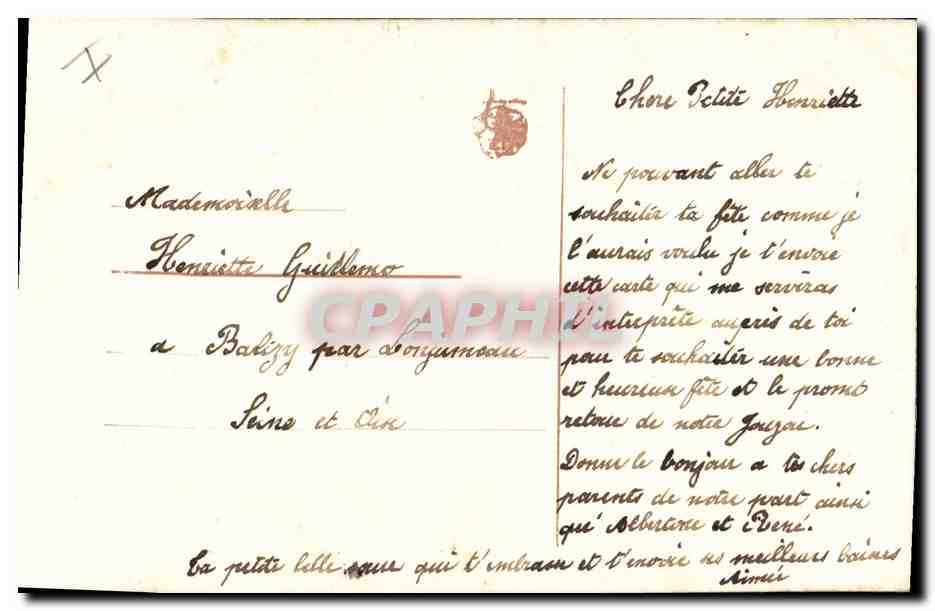 Chere Petite Henriette
Mademoiselle
Henriette Guillemo
a Balizy par Lonjumeau
Seine et Oise
Ne pouvant aller te
souhaiter ta fête comme je
l'aurais voulu je t'envoie
cette carte qui me serviras
d'interprête aupris de toi
pour te souhaiter une bonne
et heureuse fête et le promt
retour de notre
Donne le bonjour a tes chers
parents de notre part ainsi
que Albertine et René.
Ta petite belle sœur qui t'embrasse et t'envoie ses meilleurs baisers
Aimée
CPARAMA